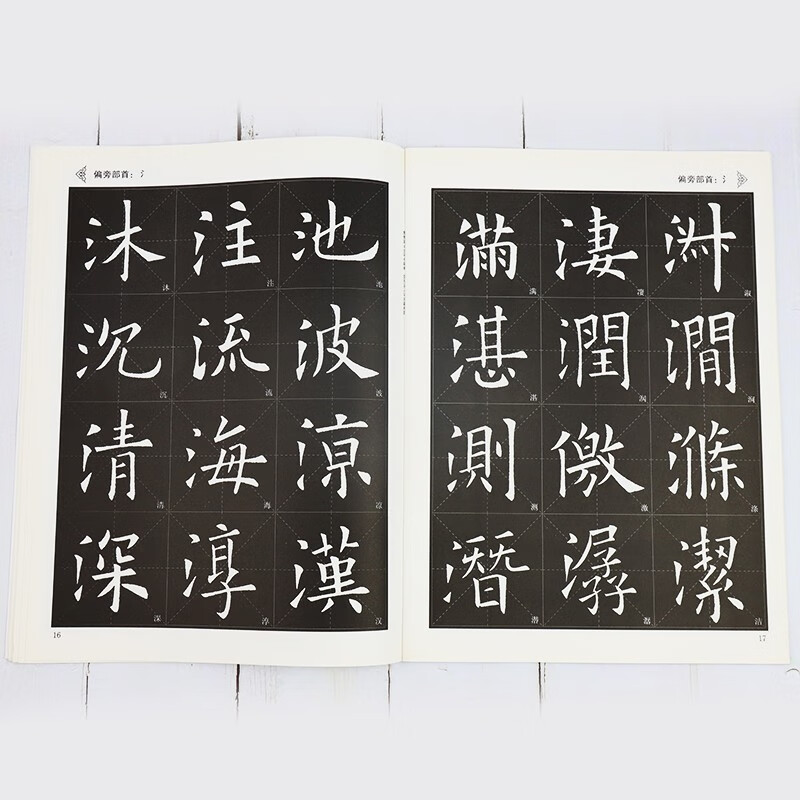 偏旁部首：氵
沐 注 池
沐 注 池
沉 流 波
沉 流 波
清 海 涼
清 海 凉
深 淳 漢
深 淳 汉
16
偏旁部首：氵
滿 淒 淑
满 凄 淑
湛 潤 澗
湛 润 涧
測 激 滌
测 激 涤
潛 潺 潔
潜 潺 洁
17